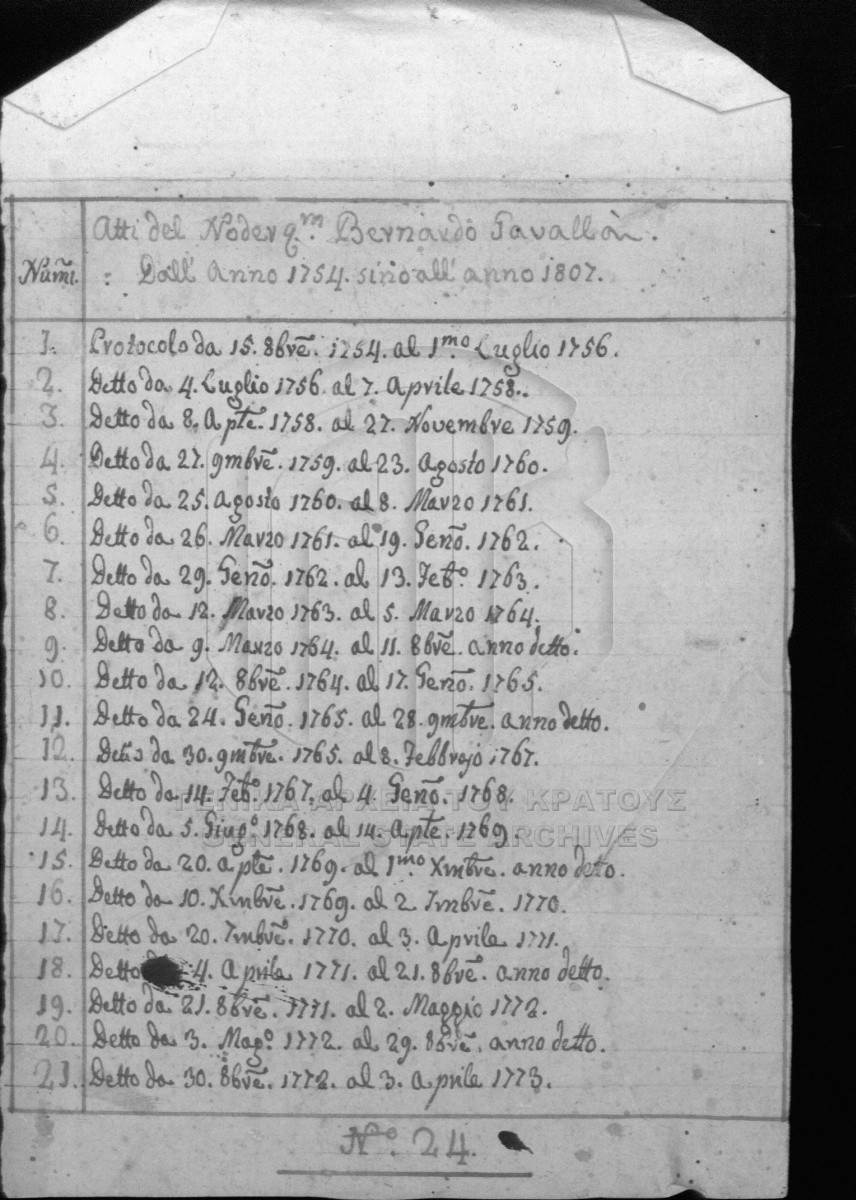 Atti del Noder qm. Bernardo Tavallàn.
Numi. : Dall' Anno 1754. sino all' anno 1807.
1. Protocolo da 15. 8bre. 1754. al 1mo. Luglio 1756.
2. Detto da 4. Luglio 1756. al 7. Aprile 1758..
3. Detto da 8. Aple. 1758. al 27. Novembre 1759.
4. Detto da 27. 9mbre. 1759. al 23. Agosto 1760.
5. Detto da 25. Agosto 1760. al 8. Marzo 1761.
6. Detto da 26. Marzo 1761. al 19. Geno. 1762.
7. Detto da 29. Geno. 1762. al 13. Febo. 1763.
8. Detto da 12. Marzo 1763. al 5. Marzo 1764.
9. Detto da 9. Marzo 1764. al 11. 8bre. anno detto.
10. Detto da 12. 8bre. 1764. al 17. Geno. 1765.
11. Detto da 24. Geno. 1765. al 28. 9mbre. anno detto.
12. Detto da 30. 9mbre. 1765. al 8. Febbrajo 1767.
13. Detto da 14. Febo. 1767. al 4. Geno. 1768.
14. Detto da 5. Giugo. 1768. al 14. Aple. 1769.
15. Detto da 20. aple. 1769. al 1mo. Xmbre. anno detto.
16. Detto da 10. Xmbre. 1769. al 2. 7mbre. 1770.
17. Detto da 20. 7mbre. 1770. al 3. Aprile 1771.
18. Detto 4. Aprile 1771. al 21. 8bre. anno detto.
19. Detto da 21. 8bre. 1771. al 2. Maggio 1772.
20. Detto da 3. Mago. 1772. al 29. 8bre. anno detto.
21. Detto da 30. 8bre. 1772. al 3. Aprile 1773.
No. 24.
ΓΕΝΙΚΑ ΑΡΧΕΙΑ ΤΟΥ ΚΡΑΤΟΥΣ
GENERAL STATE ARCHIVES